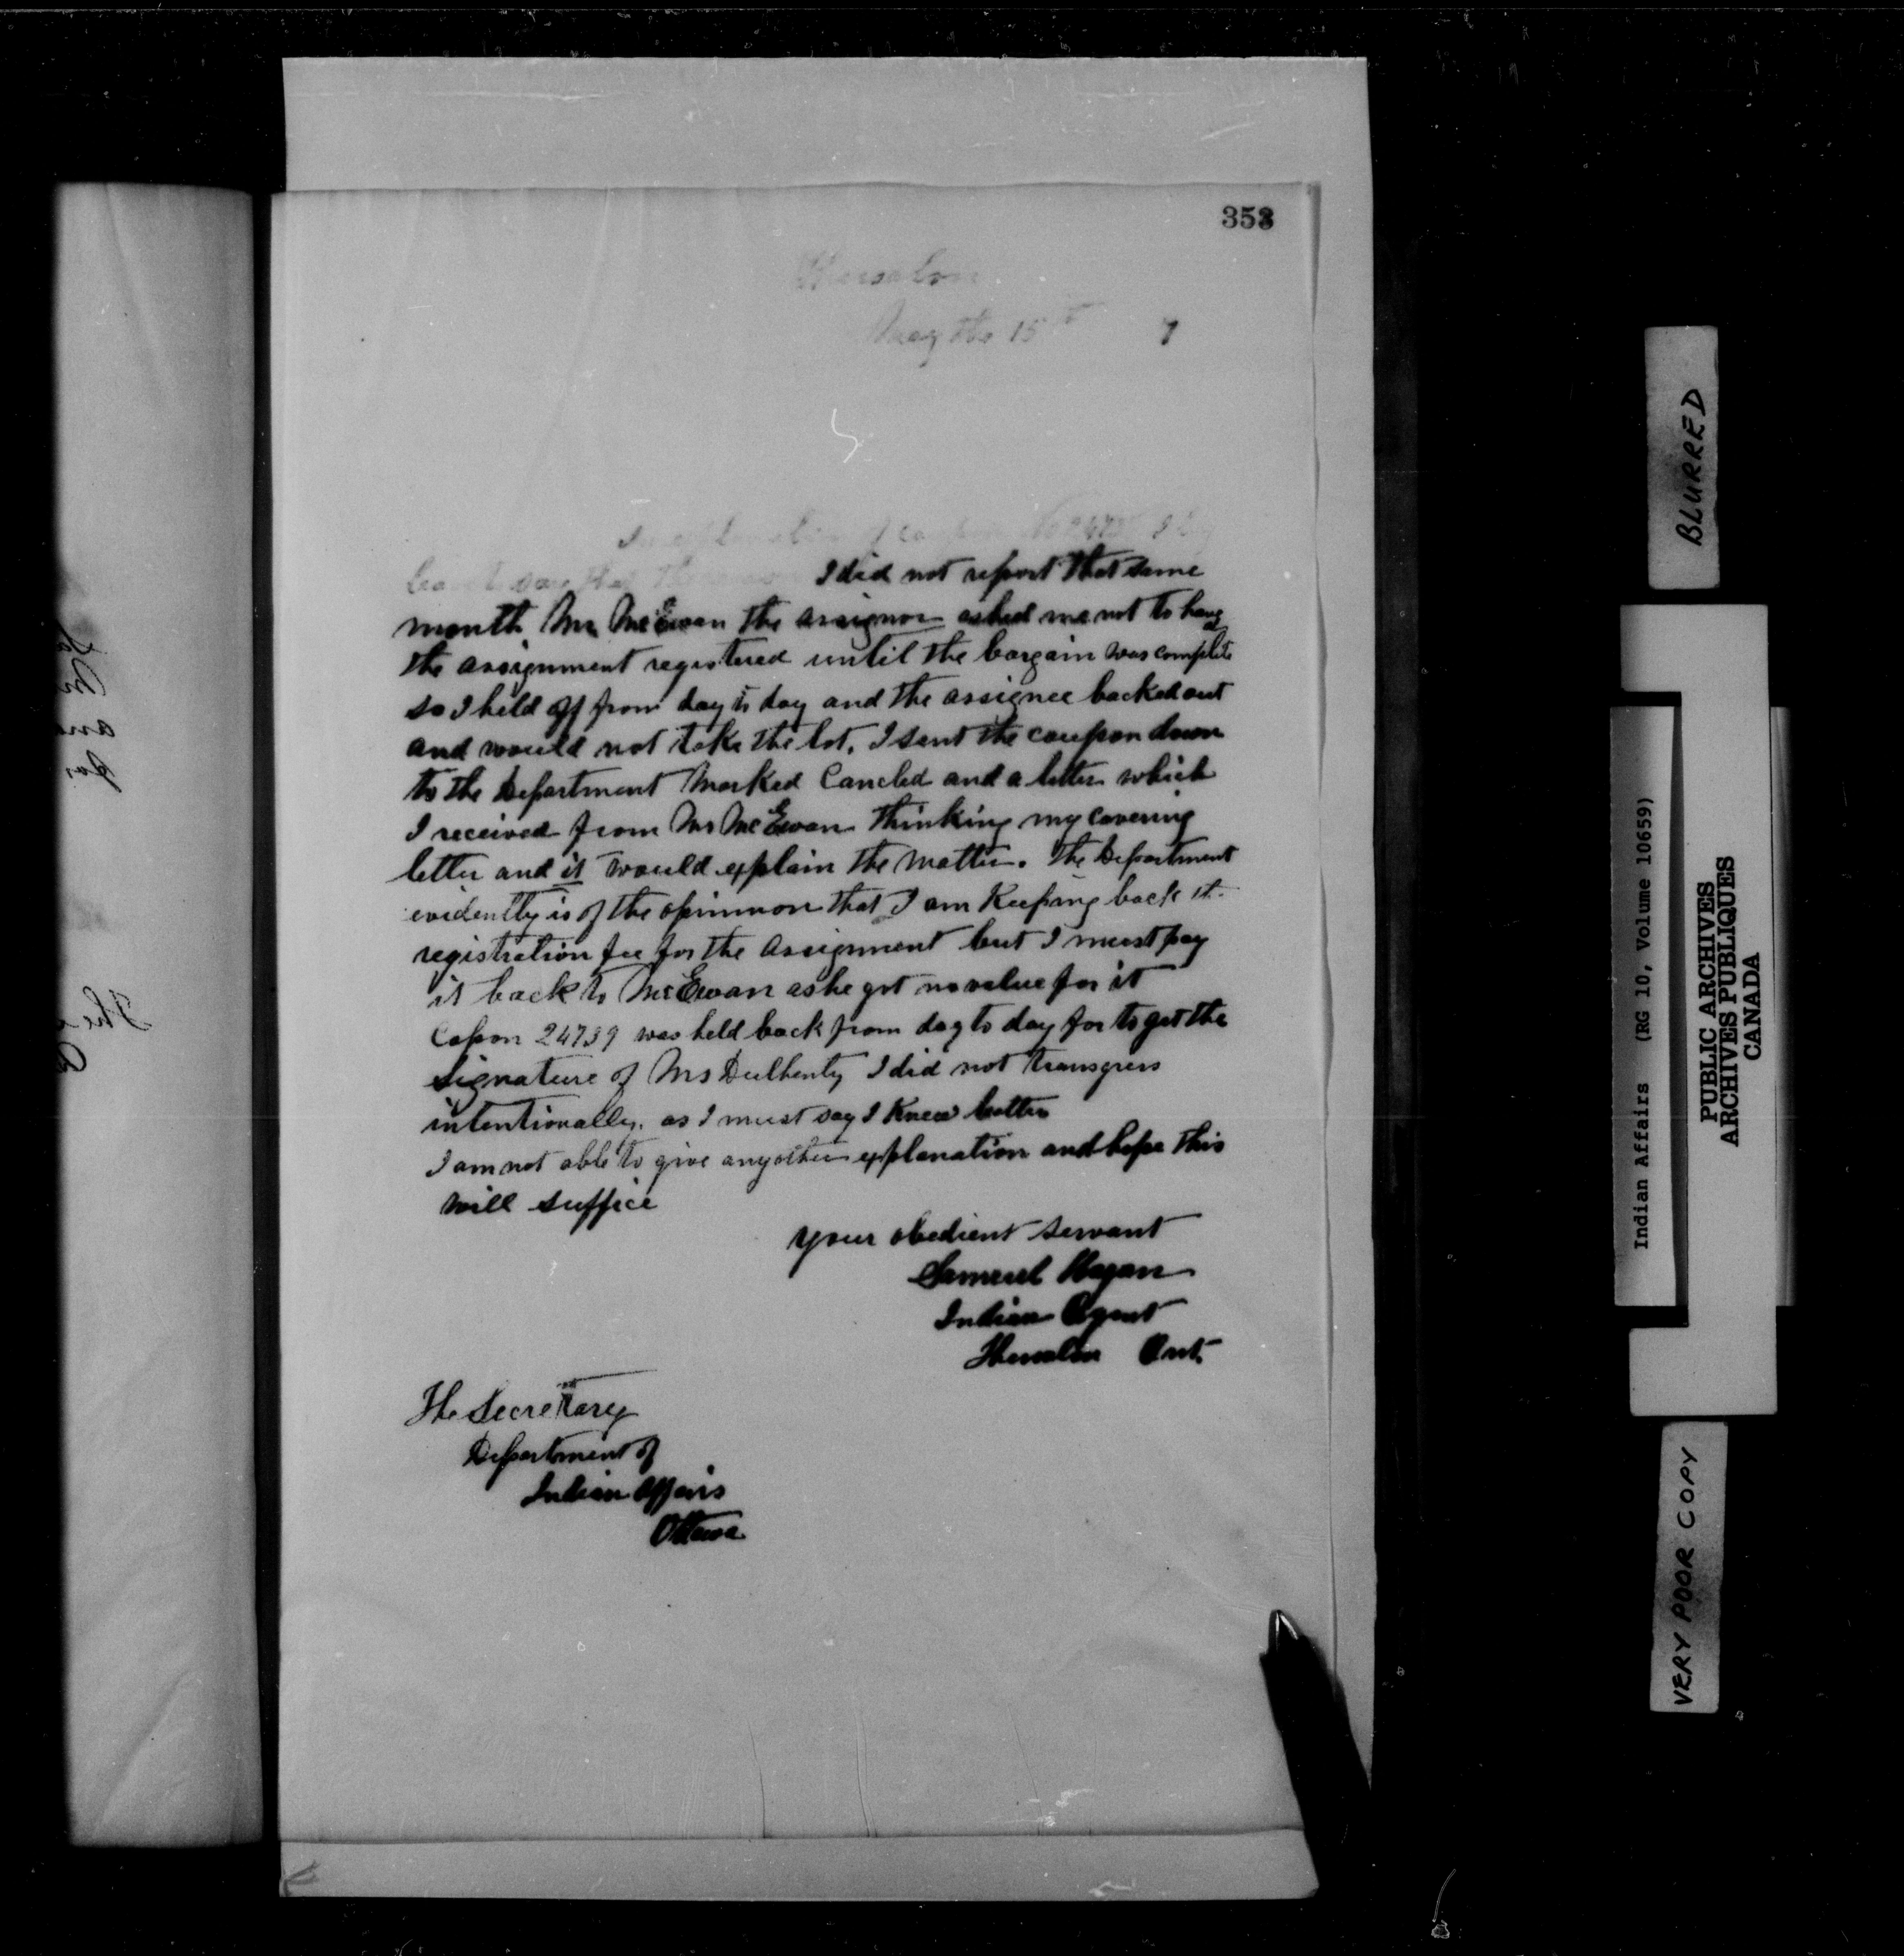 353
Thessalon
May the 15th 7
In explanation of coupon No I beg
leave to say that I did not report that same
month. Mr McEwan the assignor asked me not to have
the assignment registered until the bargain was complete
so I held off from day to day and the assignee backed out
and would not take the lot. I sent the coupon down
to the Department Marked Cancled and a letter which
I received from Mr McEwan thinking my covering
letter and it would explain the matter. The Department
evidently is of the opinnion that I am Keeping back it
registration fee for the assignment but I must pay
it back to McEwan as he got no value for it
Copon 24739 was held back from day to day for to get the
signature of Mrs I did not transgress
intentionally. as I must say I Knew better
I am not able to give any other explanation and hope this
will suffice
your obedient servant
Samuel Hagan
Indian Agent
Thessalon Ont.
The Secretary
Department of
Indian Affairs
Ottawa
The
BLURRED
Indian Affairs (RG 10, Volume 10659)
PUBLIC ARCHIVES
ARCHIVES PUBLIQUES
CANADA
VERY POOR COPY